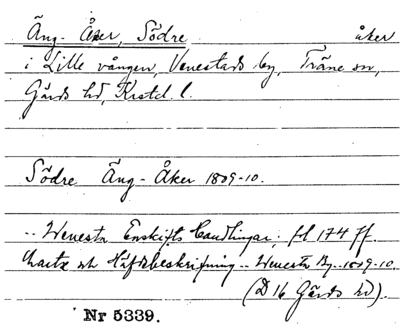 Äng-Åker, Södre åker
i Lille vången, Venestads by, Träne sn,
Gärds hd, Krstd. l.
Södre Äng-Åker 1809-10.
.. Wenesta Enskifts handlingar; fol 174 ff.
Charta och Häfdebeskrifning .. Wenesta By .. 1809-10.
(D 16 Gärds hd).
Nr 5339.